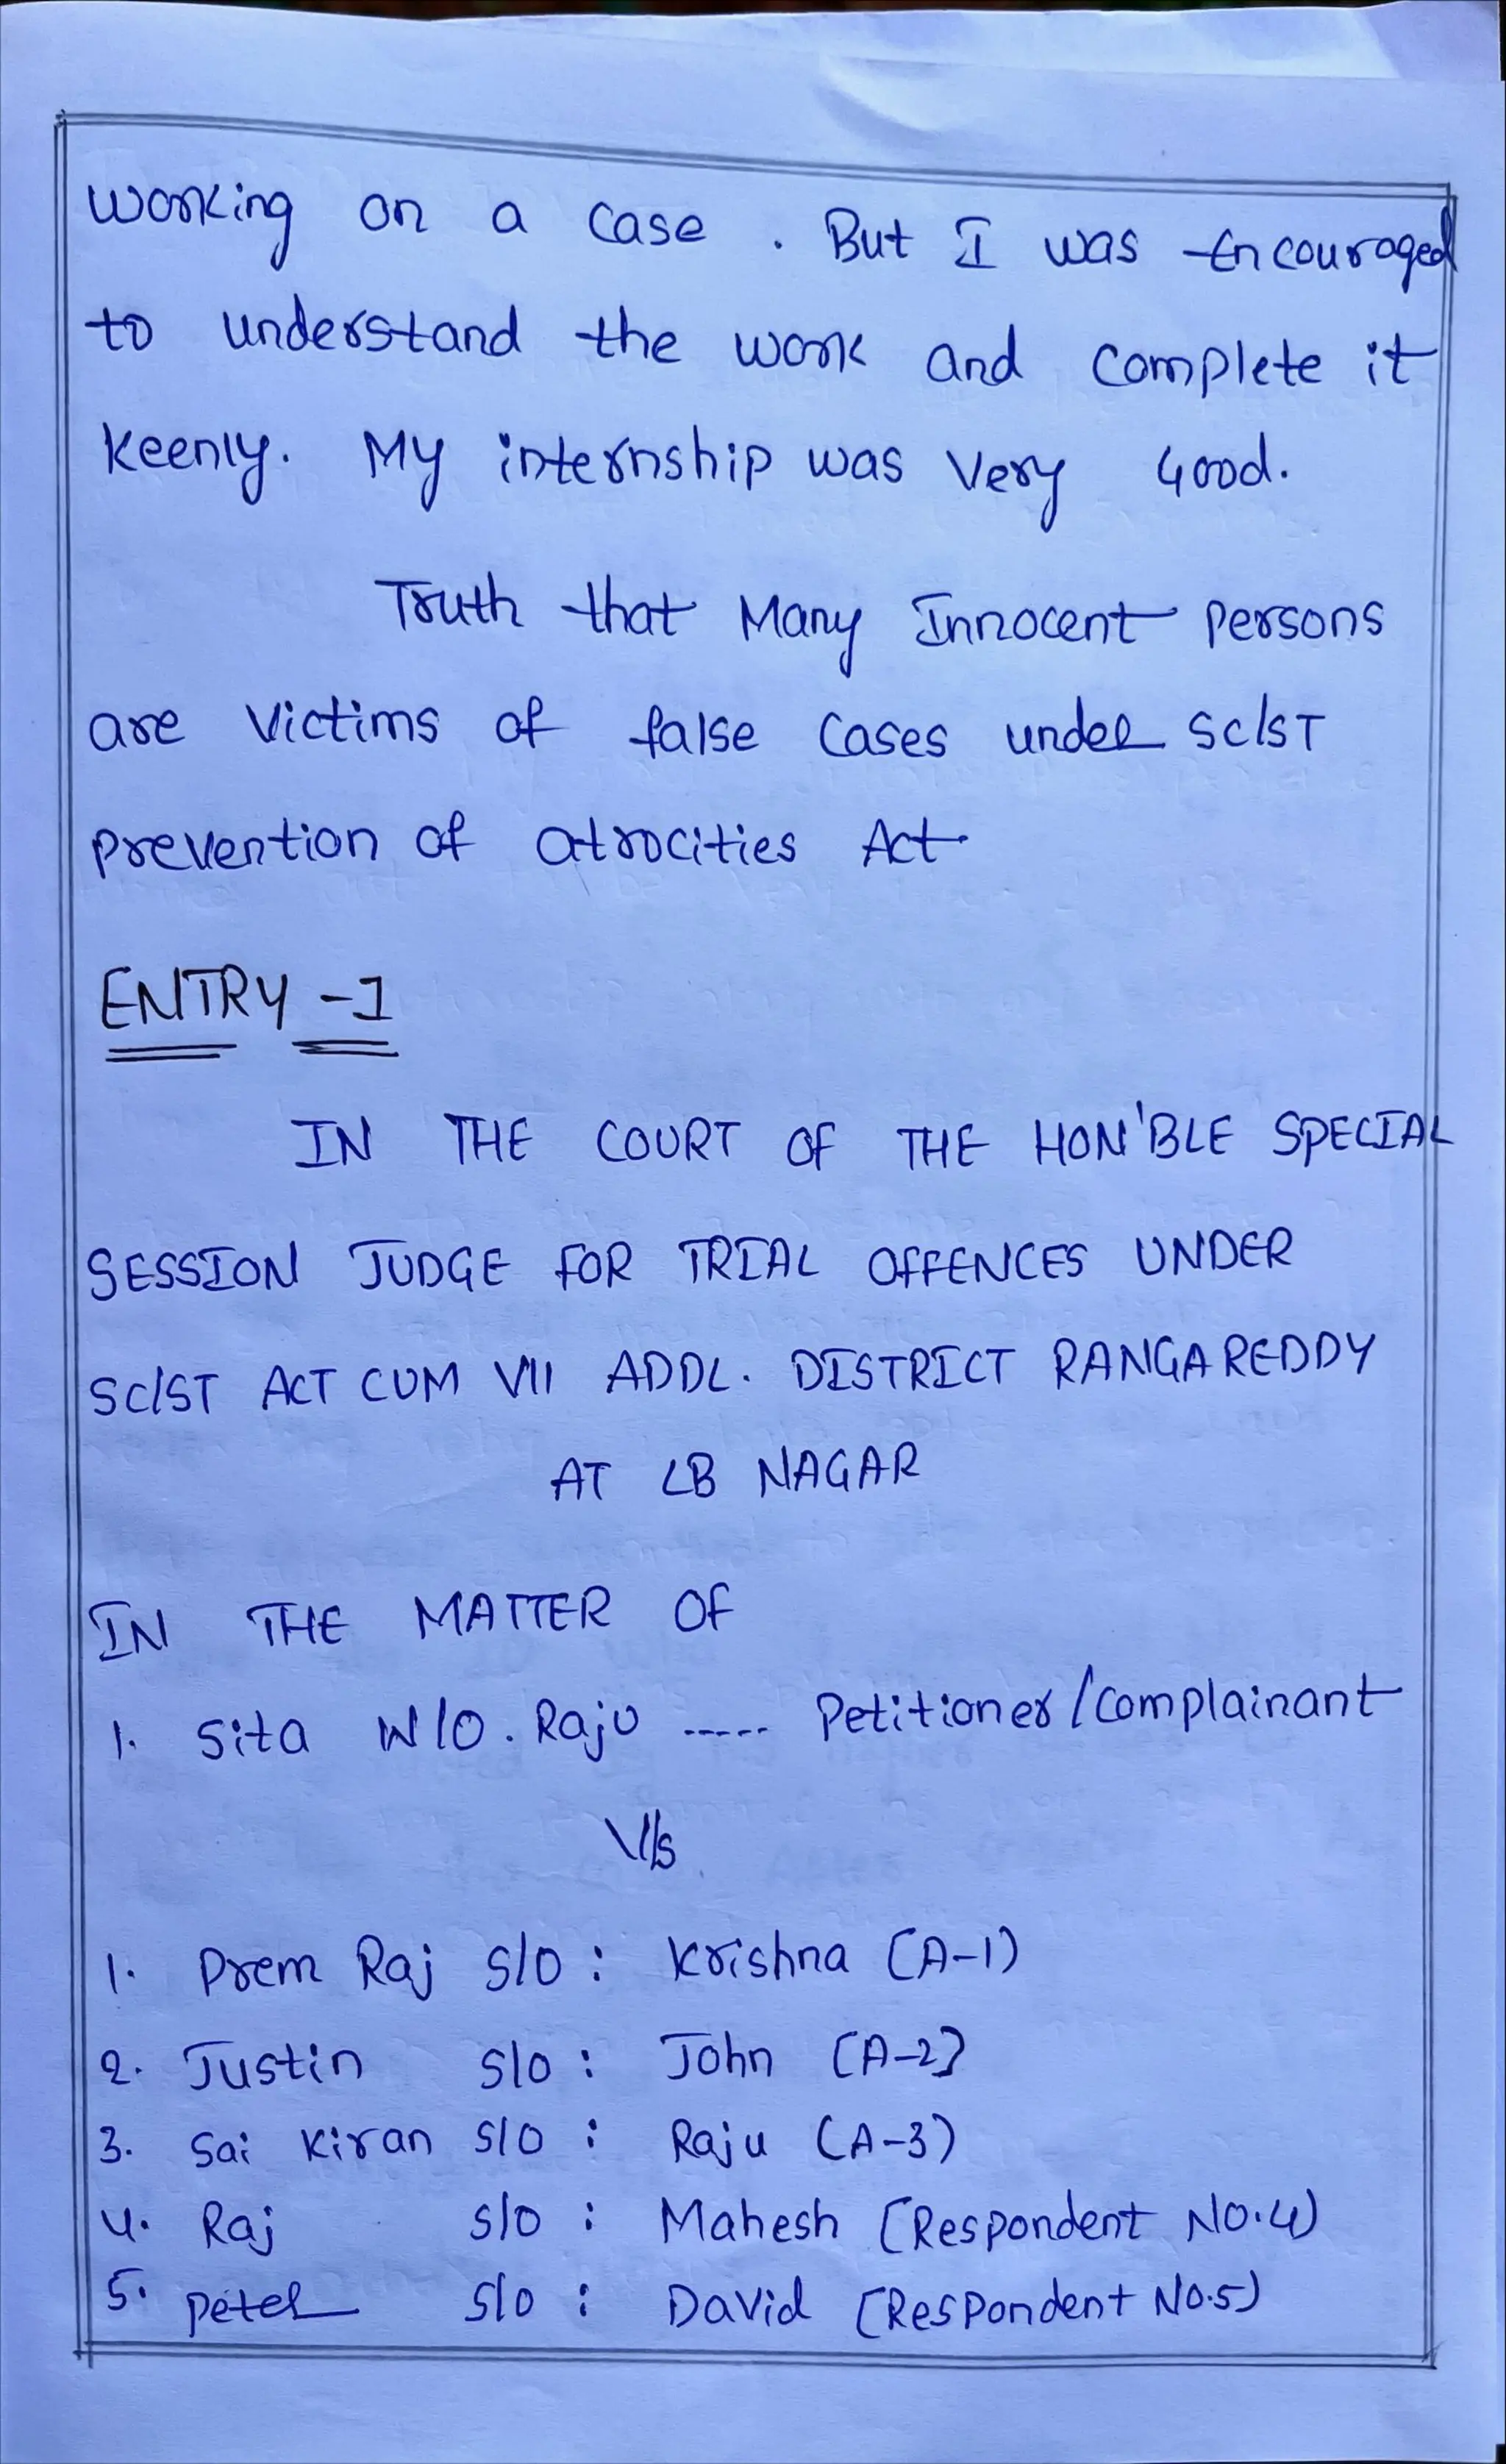 working on a case . But I was Encouraged
to understand the work and complete it
keenly. My internship was very Good.
Truth that Many Innocent persons
are victims of false cases under SC/ST
prevention of atrocities Act
ENTRY -1
IN THE COURT OF THE HON'BLE SPECIAL
SESSION JUDGE FOR TRIAL OFFENCES UNDER
SC/ST ACT CUM VII ADDL. DISTRICT RANGAREDDY
AT LB NAGAR
IN THE MATTER OF
1. Sita W/O. Raju ----- Petitioner/Complainant
V/s
1. Prem Raj S/O : Krishna (A-1)
2. Justin S/O : John (A-2)
3. Sai Kiran S/O : Raju (A-3)
4. Raj S/O : Mahesh (Respondent No.4)
5. Peter S/O : David (Respondent No.5)